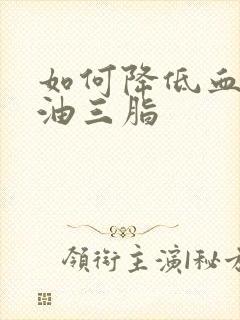 如何降低血
油三脂
领衔主演|秘方